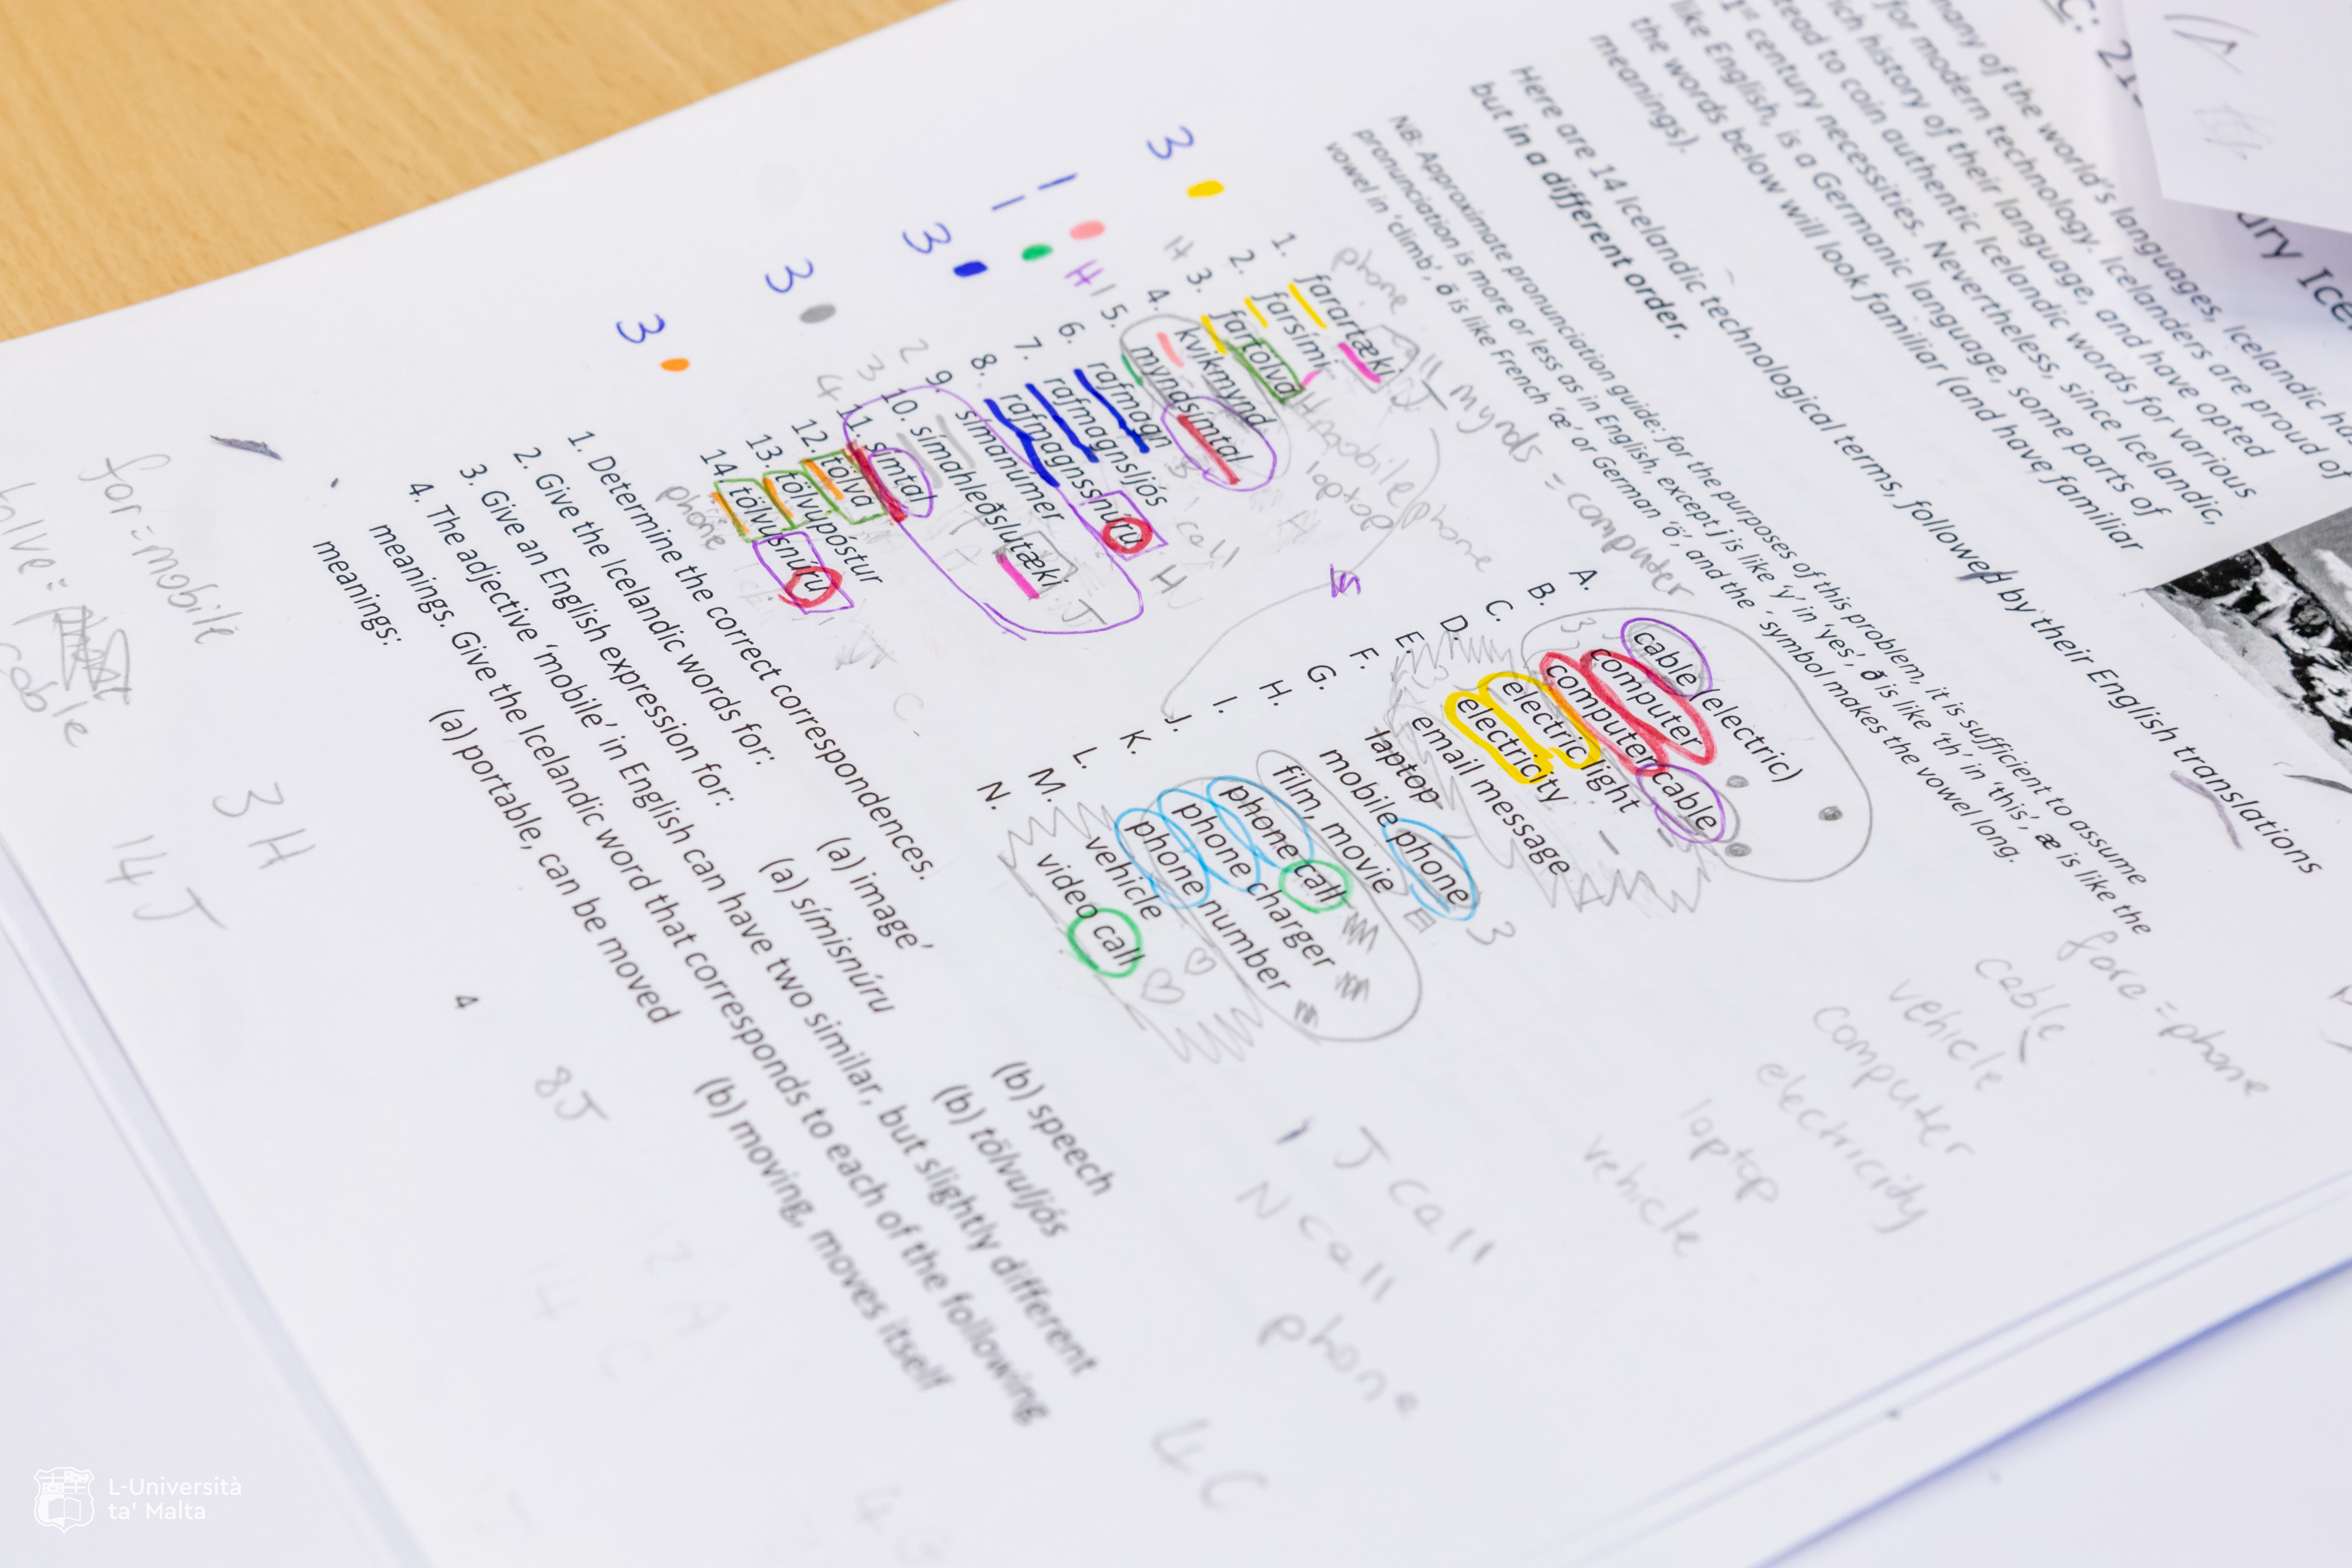 C: 21
ury Ice
many of the world's languages, Icelandic ha
for modern technology. Icelanders are proud of
ich history of their language, and have opted
tead to coin authentic Icelandic words for various
1st century necessities. Nevertheless, since Icelandic,
like English, is a Germanic language, some parts of
the words below will look familiar (and have familiar
meanings).
Here are 14 Icelandic technological terms, followed by their English translations
but in a different order.
NB: Approximate pronunciation guide: for the purposes of this problem, it is sufficient to assume
pronunciation is more or less as in English, except j is like 'y' in 'yes', ð is like 'th' in 'this', æ is like the
vowel in 'climb', ö is like French 'œ' or German 'ö', and the ´ symbol makes the vowel long.
1. farartæki
2. farsími
3. fartölva
4. kvikmynd
5. myndsímtal
6. rafmagn
7. rafmagnsljós
8. rafmagnssnúru
9. símanúmer
10. símahleðslutæki
11. símtal
12. tölva
13. tölvupóstur
14. tölvusnúru
A. cable (electric)
B. computer
C. computer cable
D. electric light
E. electricity
F. email message
G. laptop
H. mobile phone
I. film, movie
J. phone call
K. phone charger
L. phone number
M. vehicle
N. video call
1. Determine the correct correspondences.
2. Give the Icelandic words for: (a) image' (b) speech
3. Give an English expression for: (a) símisnúru (b) tölvuljós
4. The adjective 'mobile' in English can have two similar, but slightly different
meanings. Give the Icelandic word that corresponds to each of the following
meanings:
(a) portable, can be moved (b) moving, moves itself
4
3
1
1
3
3
3
H
H
2
3
4
phone
J
mynds = computer
mobile phone
laptop
call
H
J
phone
3
for = mobile
cable
3 H
14 J
8 J
12 A
14 C
J call
N call
phone
4 C
4 G
fore = phone
cable
vehicle
computer
electricity
laptop
vehicle
L-Università
ta' Malta